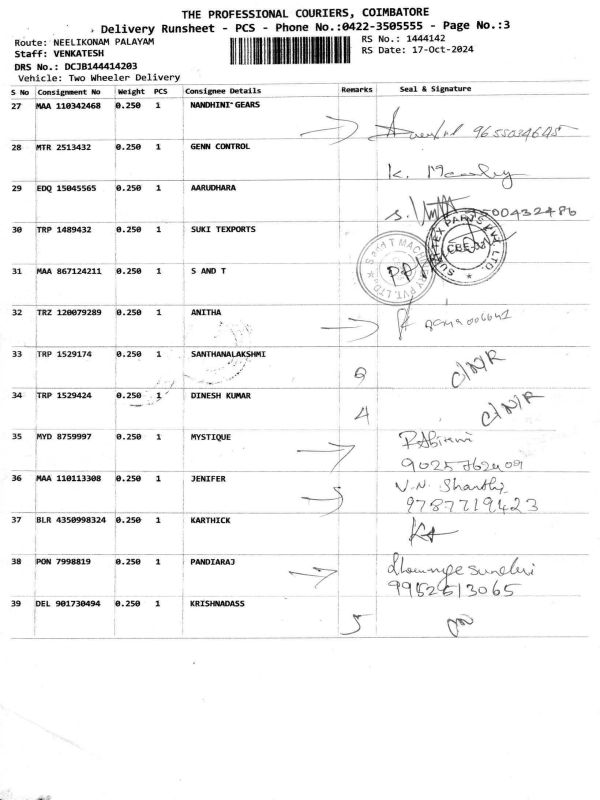 THE PROFESSIONAL COURIERS, COIMBATORE
Delivery Runsheet - PCS - Phone No.:0422-3505555 - Page No.:3
Route: NEELIKONAM PALAYAM
RS No.: 1444142
Staff: VENKATESH
RS Date: 17-Oct-2024
DRS No.: DCJB144414203
Vehicle: Two Wheeler Delivery
S No Consignment No Weight PCS Consignee Details Remarks Seal & Signature
27 MAA 110342468 0.250 1 NANDHINI GEARS
9655034645
28 MTR 2513432 0.250 1 GENN CONTROL
K.
29 EDQ 15045565 0.250 1 AARUDHARA
S.
30 TRP 1489432 0.250 1 SUKI TEXPORTS
31 MAA 867124211 0.250 1 S AND T
32 TRZ 120079289 0.250 1 ANITHA
33 TRP 1529174 0.250 1 SANTHANALAKSHMI
C/N/R
34 TRP 1529424 0.250 1 DINESH KUMAR
4 C/N/R
35 MYD 8759997 0.250 1 MYSTIQUE
36 MAA 110113308 0.250 1 JENIFER
V.N. Shanthi
9787719423
37 BLR 4350998324 0.250 1 KARTHICK
38 PON 7998819 0.250 1 PANDIARAJ
9952513065
39 DEL 901730494 0.250 1 KRISHNADASS
5